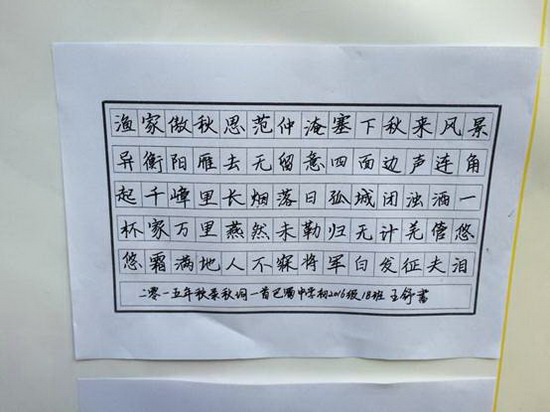 渔家傲秋思范仲淹塞下秋来风景
异衡阳雁去无留意四面边声连角
起千嶂里长烟落日孤城闭浊酒一
杯家万里燕然未勒归无计羌管悠
悠霜满地人不寐将军白发征夫泪
二零一五年秋录秋词一首巴蜀中学初2016级18班 王舒書